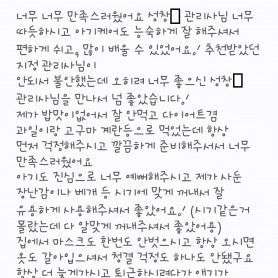 너무 너무 만족스러웠어요 성창 관리사님 너무
따듯하시고 아기케어도 능숙하게 잘 해주셔서
편하게 쉬고, 많이 배울 수 있었어요.! 추천받았던
지정 관리사님이
안되서 불안했는데 오히려 너무 좋으신 성창
관리사님을 만나서 넘 좋았습니다.!
제가 밥맛이없어서 잘 안먹고 다이어트겸
과일이랑 고구마 계란등으로 먹었는데 항상
먼저 걱정해주시고 깔끔하게 준비해주셔서 너무
만족스러웠어요
아기도 진심으로 너무 예뻐해주시고 제가 사둔
장난감이나 베개 등 시기에 맞게 꺼내서 잘
유용하게 사용해주셔서 좋았어요.! (시기같은거
몰랐는데 다 알맞게 꺼내주셔서 좋았어용)
집에서 마스크도 한번도 안벗으시고 항상 오시면
옷도 갈아입으셔서 청결 걱정도 하나도 안됐구요
항상 더 늦게가시고 퇴근하시려다가 얘기가